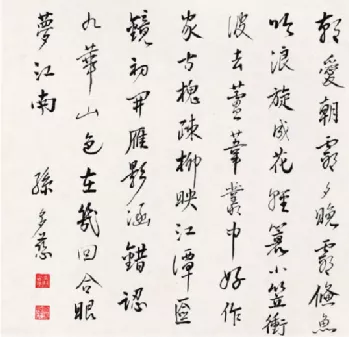 愛朝霞夕晚霞鯈魚
吹浪旋成花輕蓑小笠衝
波去萑葦叢中好作
家古槐疎柳映江潭匳
鏡初開雁影涵錯認
九華山色在幾回合眼
夢江南 孫多慈